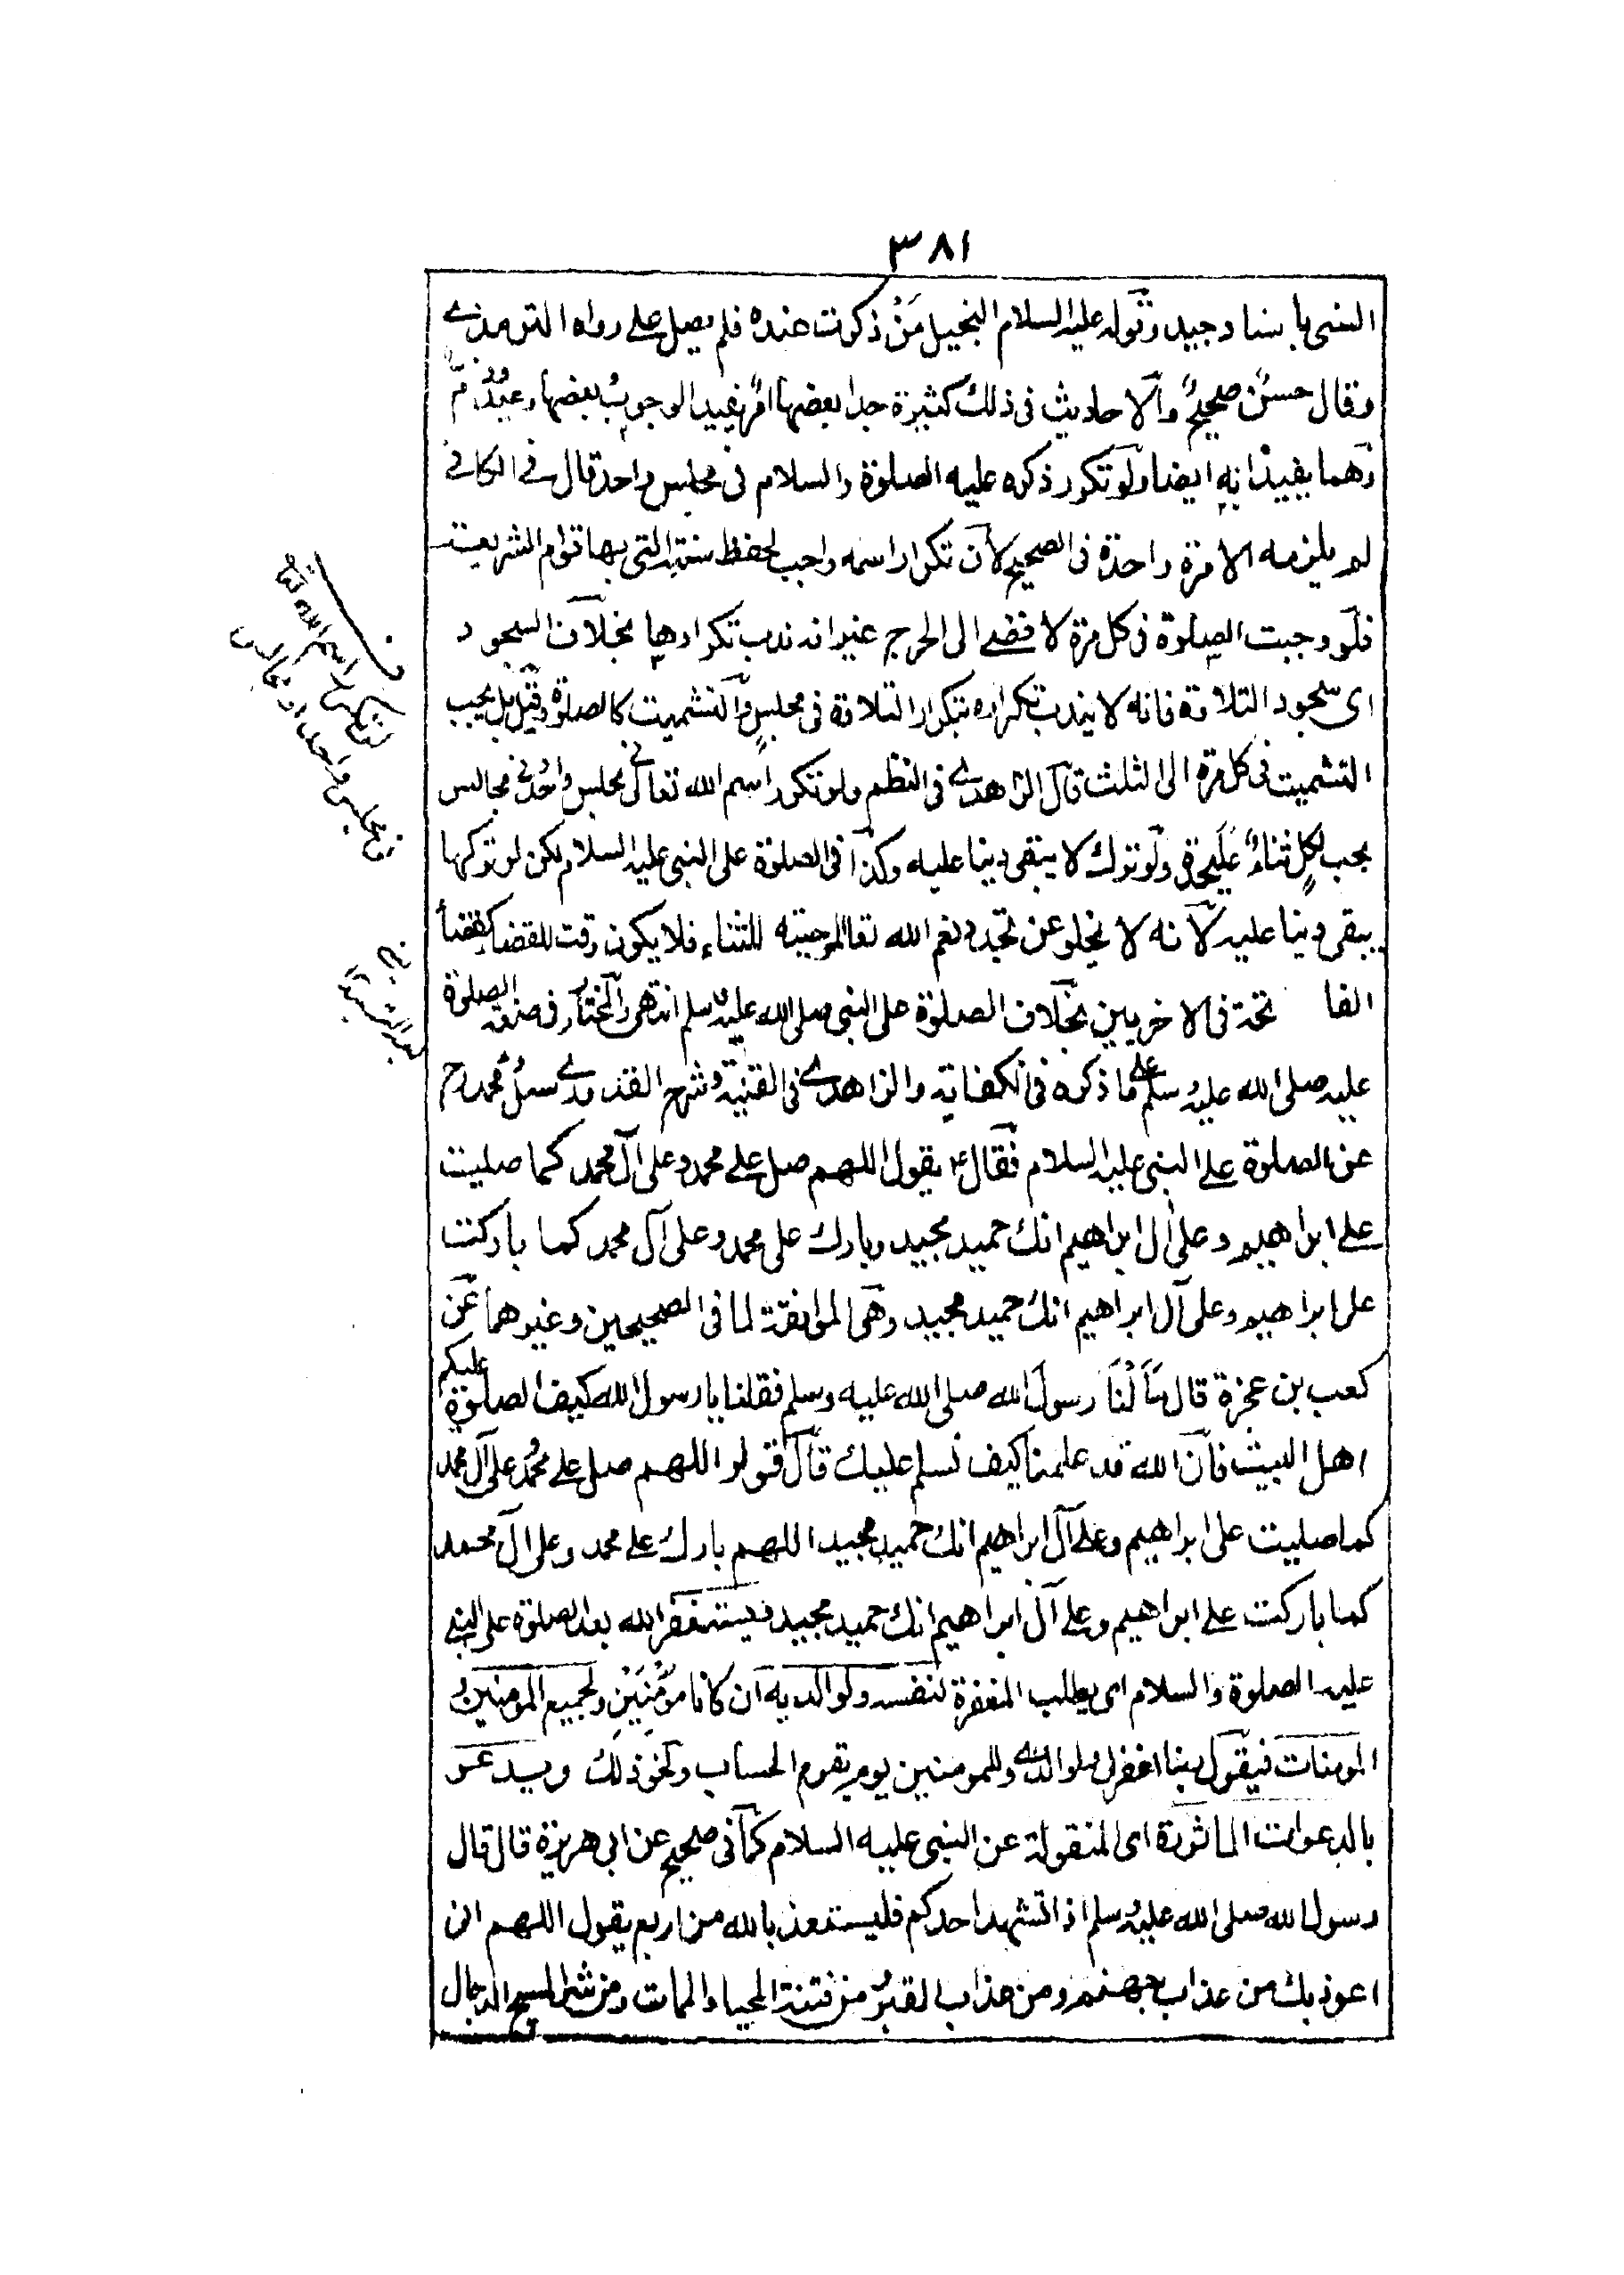 ٣٨١
السنى باسناد جيد وقوله عليه السلام البخيل مَنْ ذكرت عنده فلم يصل على رواه الترمذے
وقال حسنٌ صحيحٌ والاحاديث فى ذلك كثيرة جدا بعضها امرٌ يفيد الوجوب وبعضها وعيدٌ وذمٌ
وهما يفيدانه ايضا ولو تكرر ذكره عليه الصلوة والسلام فى مجلس واحد قال فے الكافے
لم يلزمه الا مرة واحدة فى الصحيح لان تكرار اسمه واجب لحفظ سنته التى بها قوام الشريعت
فلو وجبت الصلوة فى كل مرة لافضے الى الحرج غير انه ندب تكرارها بخلاف السجود
اى سجود التلاوة فانه لا يندب تكراره بتكرار التلاوة فى مجلس والتشميت كالصلوة وقيل بل يجب
التشميت فى كل مرة الى الثلث قال الزاهدے فى النظم ولو تكرر اسم الله تعالى فى مجلس واحد او فى مجالس
يجب لكل ثناءٌ عليحدة ولو ترك لا يبقى دينا عليه وكذا فى الصلوة على النبى عليه السلام لكن لو تركها
يبقى دينا عليه لانه لا يخلو عن تجدد نعم الله تعالى الموجبته للثناء فلا يكون وقت للقضا كقضاء
الفا تحة فى الاخريين بخلاف الصلوة على النبى صلى الله عليه وسلم انتهى والمختار فى صفة الصلوة
عليه صلى الله عليه وسلم على ما ذكره فى الكفاية والزاهدے فى القنية وشرح القدورے سئل محمد رح
عن الصلوة على النبى عليه السلام فقال يقول اللهم صل على محمد وعلى آل محمد كما صليت
على ابراهيم وعلى آل ابراهيم انك حميد مجيد وبارك على محمد وعلى آل محمد كما باركت
على ابراهيم وعلى آل ابراهيم انك حميد مجيد وهى الموافقة لما فى الصحيحين وغيرهما عن
كعب بن عجرة قال سَاَلْنَا رسول الله صلى الله عليه وسلم فقلنا يا رسول الله كيف الصلوة عليكم
اهل البيت فان الله قد علمنا كيف نسلم عليك قال قولوا اللهم صل على محمد وعلى آل محمد
كما صليت على ابراهيم وعلى آل ابراهيم انك حميد مجيد اللهم بارك على محمد وعلى آل محمد
كما باركت على ابراهيم وعلى آل ابراهيم انك حميد مجيد ويستغفر الله بعد الصلوة على النبے
عليه الصلوة والسلام اى يطلب المغفرة لنفسه ولوالديه ان كانا مؤمِنَيْنِ ولجميع المومنين و
المومنات فيقول ربنا اغفر لى ولوالدى وللمومنين يوم يقوم الحساب ونحو ذلك ويدعو
بالدعوات الماثورة اى المنقولة عن النبى عليه السلام كما فى صحيح عن ابى هريرة قال قال
رسول الله صلى الله عليه وسلم اذا تشهد احدكم فليستعذ بالله من اربع يقول اللهم انى
اعوذ بك من عذاب جهنم ومن عذاب القبر ومن فتنة المحيا والممات ومن شر المسيح الدجال
تكرار اسم الله تعا
فى مجلس واحد او مجالس